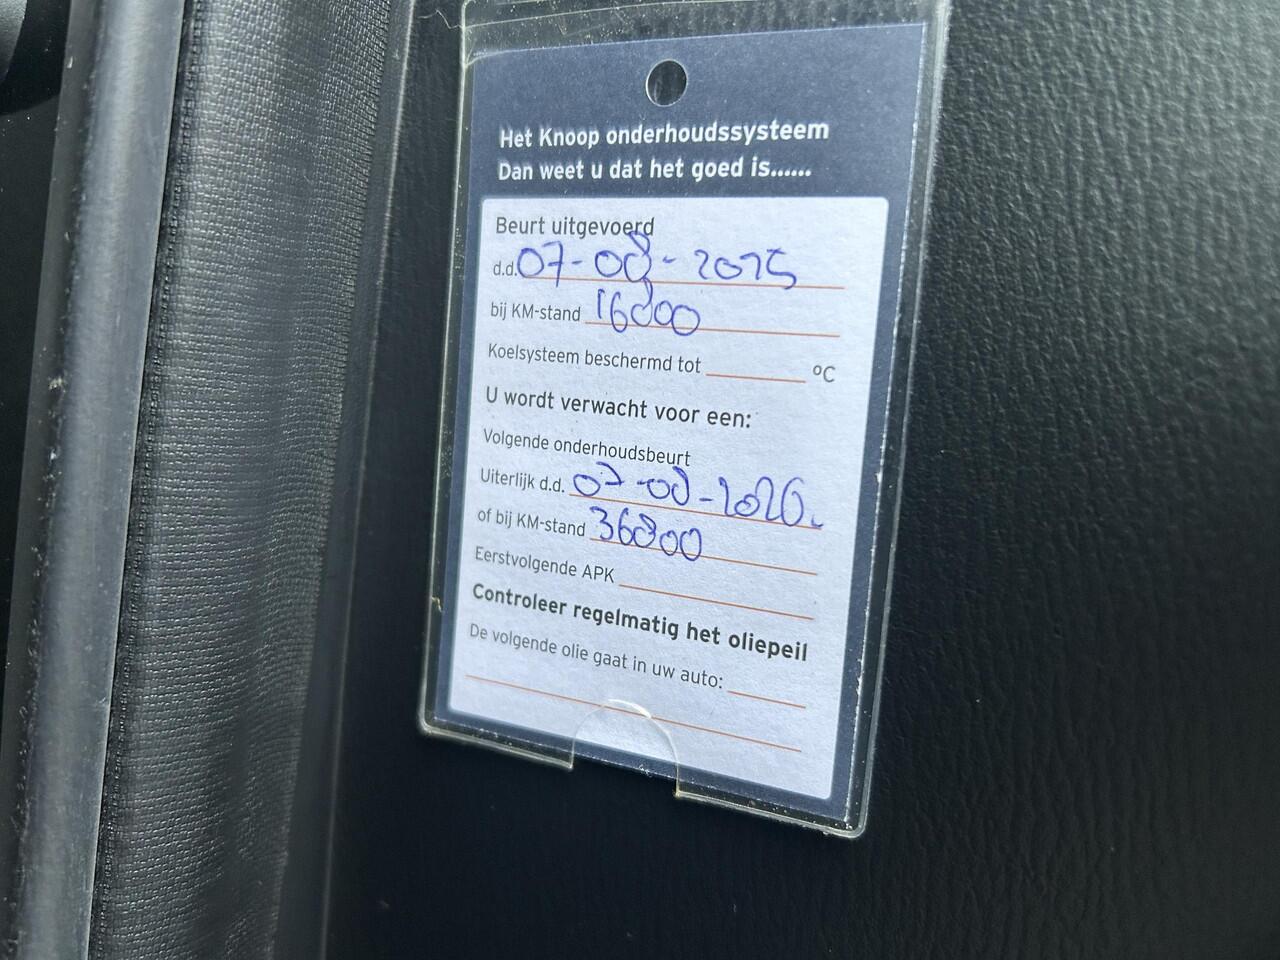 Het Knoop onderhoudssysteem
Dan weet u dat het goed is......
Beurt uitgevoerd
d.d. 07-08-2025
bij KM-stand 16800
Koelsysteem beschermd tot ºC
U wordt verwacht voor een:
Volgende onderhoudsbeurt
Uiterlijk d.d. 07-08-2026.
of bij KM-stand 36800
Eerstvolgende APK
Controleer regelmatig het oliepeil
De volgende olie gaat in uw auto: